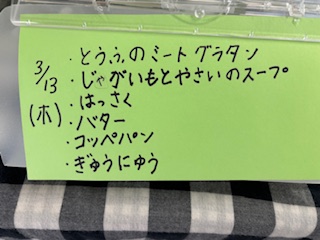 3/13
(木)
・とうふのミートグラタン
・じゃがいもとやさいのスープ
・はっさく
・バター
・コッペパン
・ぎゅうにゅう